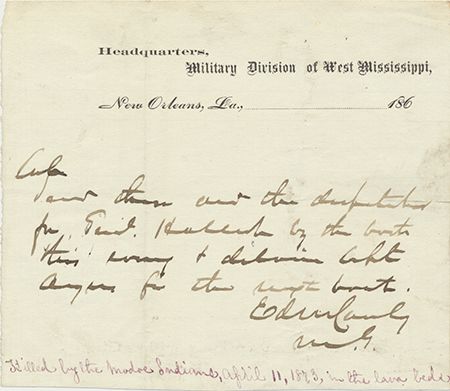 Headquarters,
Military Division of West Mississippi,
New Orleans, La., 186
send these and the dispatches
for Genl. Halleck by the boat
this evening & detain Capt
for the next boat.
Ed R S Canby
M. G.
Killed by the Modoc Indians, April 11, 1873, in the lava beds